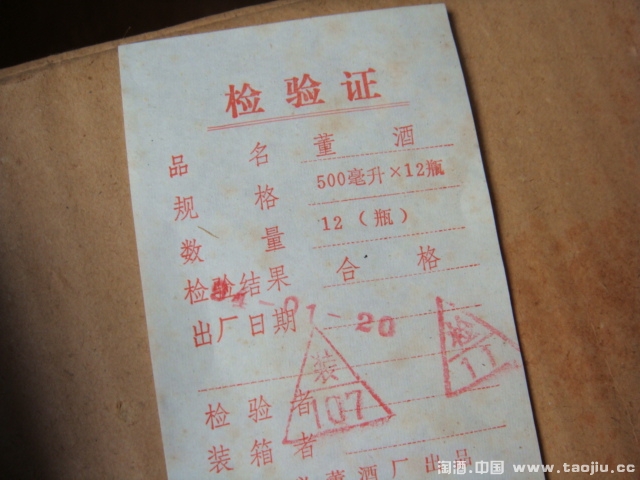 检验证
品名 董酒
规格 500毫升×12瓶
数量 12(瓶)
检验结果 合格
出厂日期 -01-20
检 11
装 107
检验者
装箱者
董酒厂出品
淘酒.中国 www.taojiu.cc